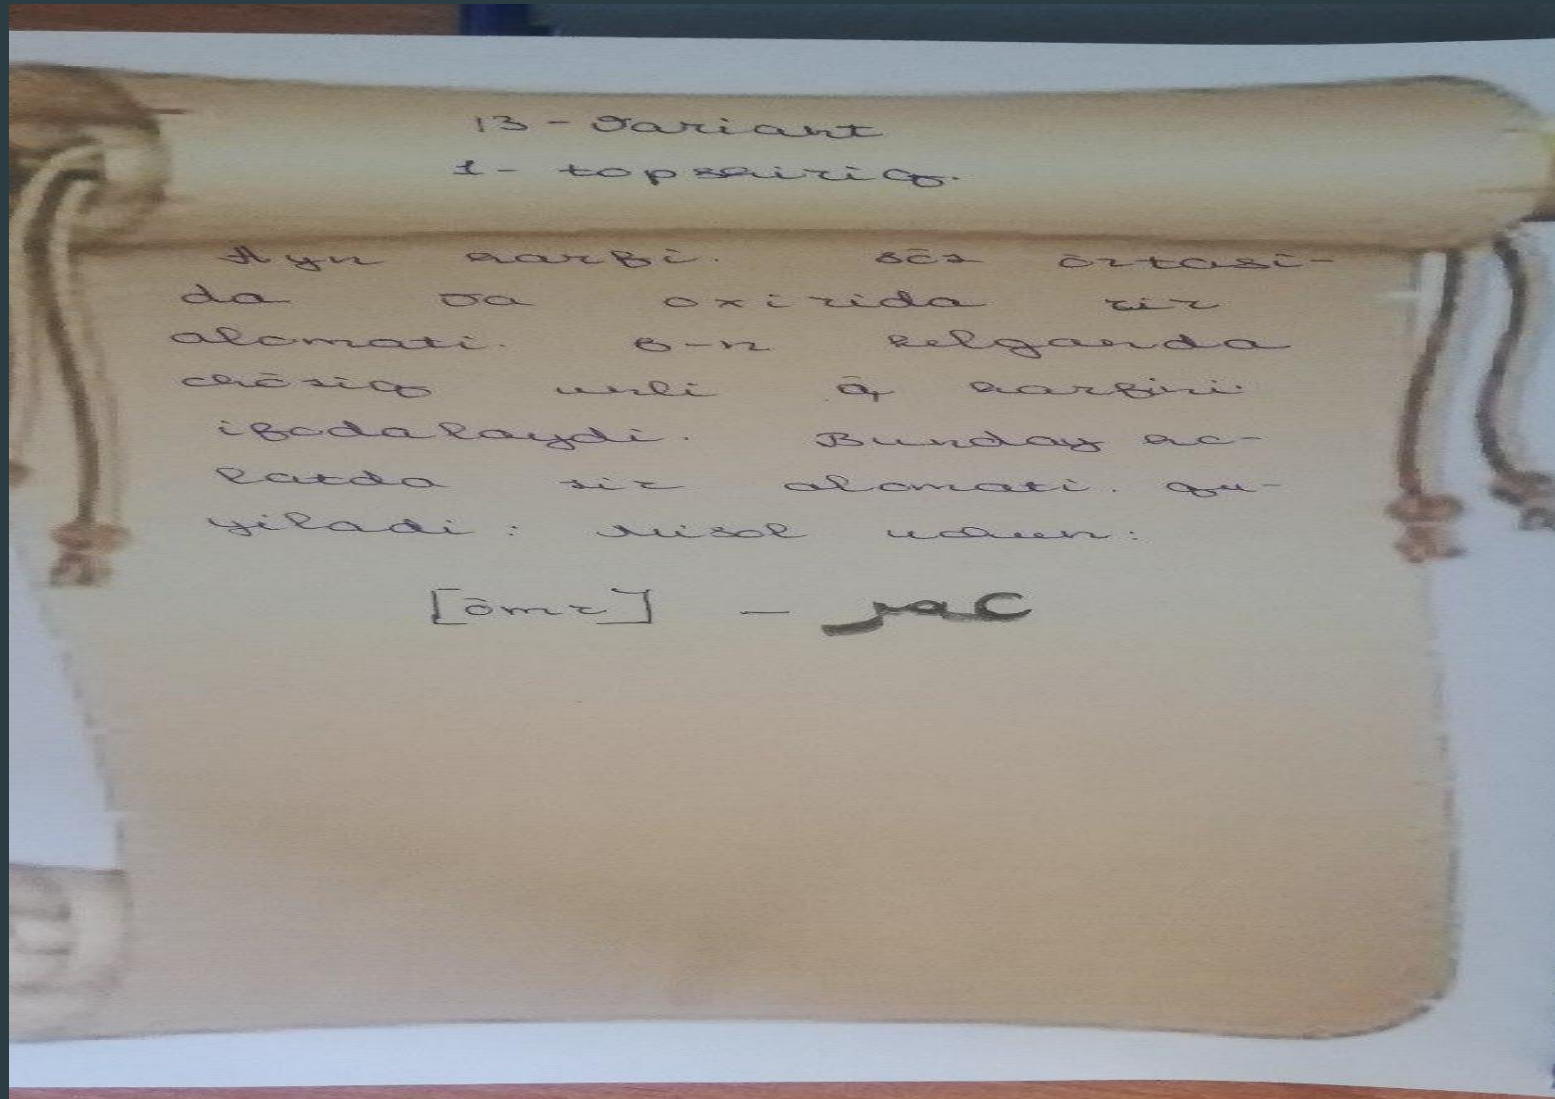 13-Variant
1-topshiriq.
Ayn harfi. sōz ōrtasi-
da va oxirida zir
alomati. b-n kelganda
chōziq unli ā harfini
ifodalaydi. Bunday ho-
latda zir alomati. qu-
yiladi: Misol uchun:
[ōmr] - عمر